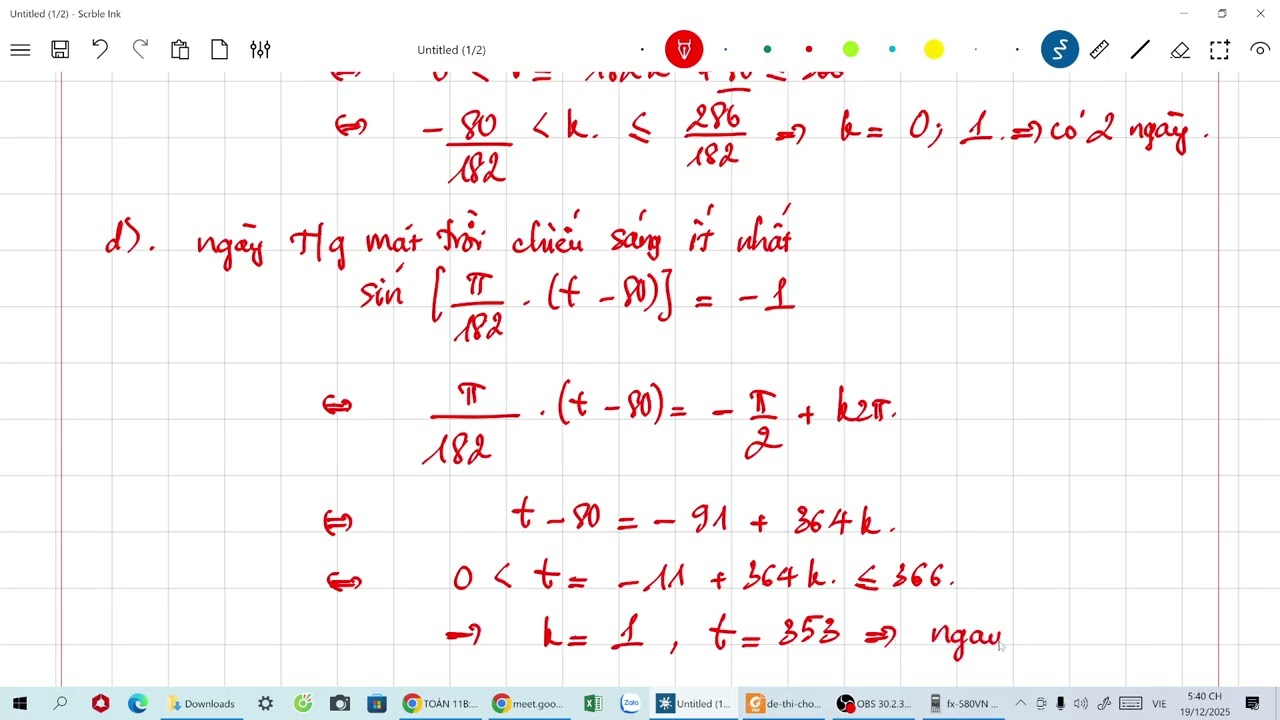 Untitled (1/2) - Scrble Ink
Untitled (1/2)
⇔ - 80/182 < k. ≤ 286/182 ⇒ k = 0; 1. ⇒ có 2 ngày.
d). ngày Hg mát trời chiếu sáng ít nhất
sin [π/182 . (t - 80)] = - 1
⇔ π/182 . (t - 80) = - π/2 + k2π.
⇔ t - 80 = - 91 + 364k.
⇔ 0 < t = - 11 + 364k. ≤ 366.
→ k = 1, t = 353 ⇒ ngay
Downloads
OÁN 11B:...
meet.goo...
Zalo
Untitled (1...
de-thi-cho...
OBS 30.2.3...
fx-580VN ...
VIE
5:40 CH
19/12/2025